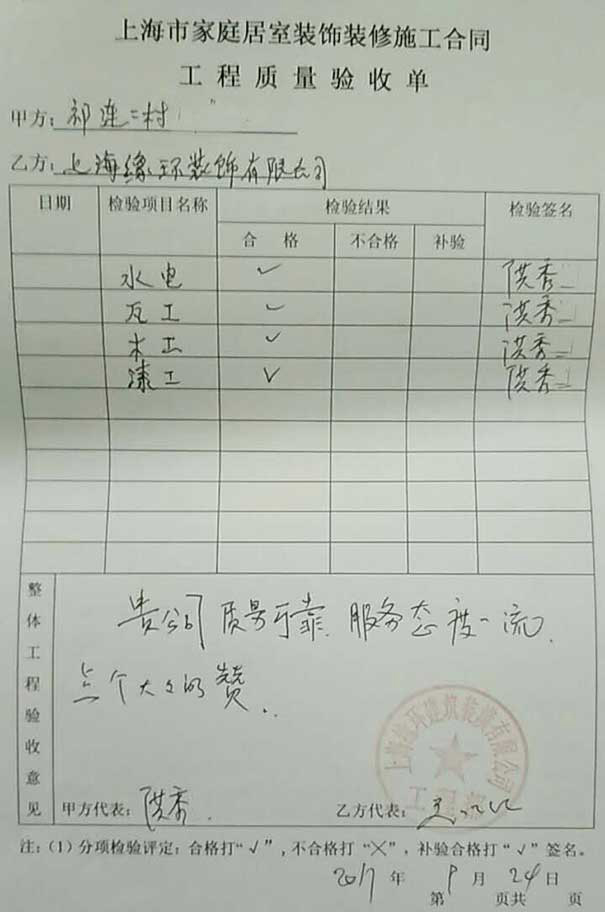 上海市家庭居室装饰装修施工合同
工程质量验收单
甲方：祁连二村
乙方：上海缘环装饰有限公司
日期 检验项目名称 检验结果 检验签名
合格 不合格 补验
水电 ✓ 洪秀
瓦工 ✓ 洪秀
木工 ✓ 洪秀
漆工 ✓ 洪秀
整体工程验收意见
贵公司质量可靠，服务态度一流，
点个大大的赞．
甲方代表：洪秀
乙方代表：
注：（1）分项检验评定：合格打“√”，不合格打“╳”，补验合格打“√”签名。
2017年9月24日
第 页共 页